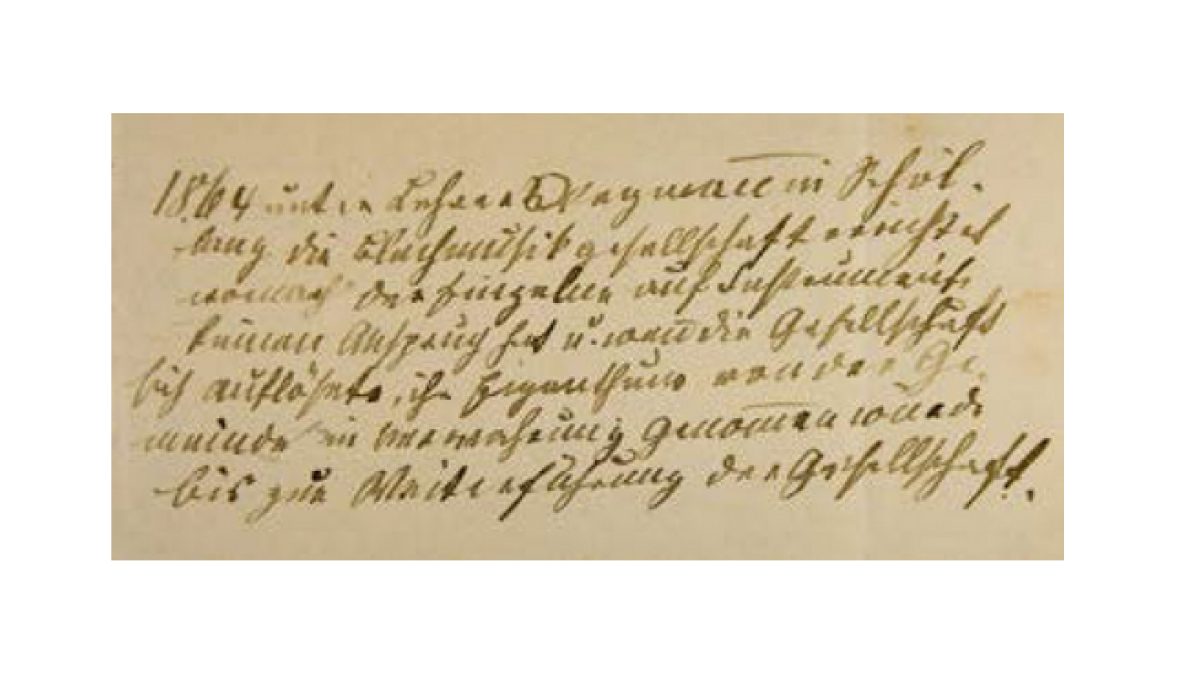 1864 unter Lehrer Wegmann in Schöl-
lang die Blechmusikgesellschaft errichtet
wonach der Einzelne auf Instrumente
keinen Anspruch hat u. wen̄ die Gesellschaft
sich auflöhste, ihr Eigenthum von der Ge-
meinde in Verwahrung genom̄en wurde
bis zur Weiterführung der Gesellschaft.